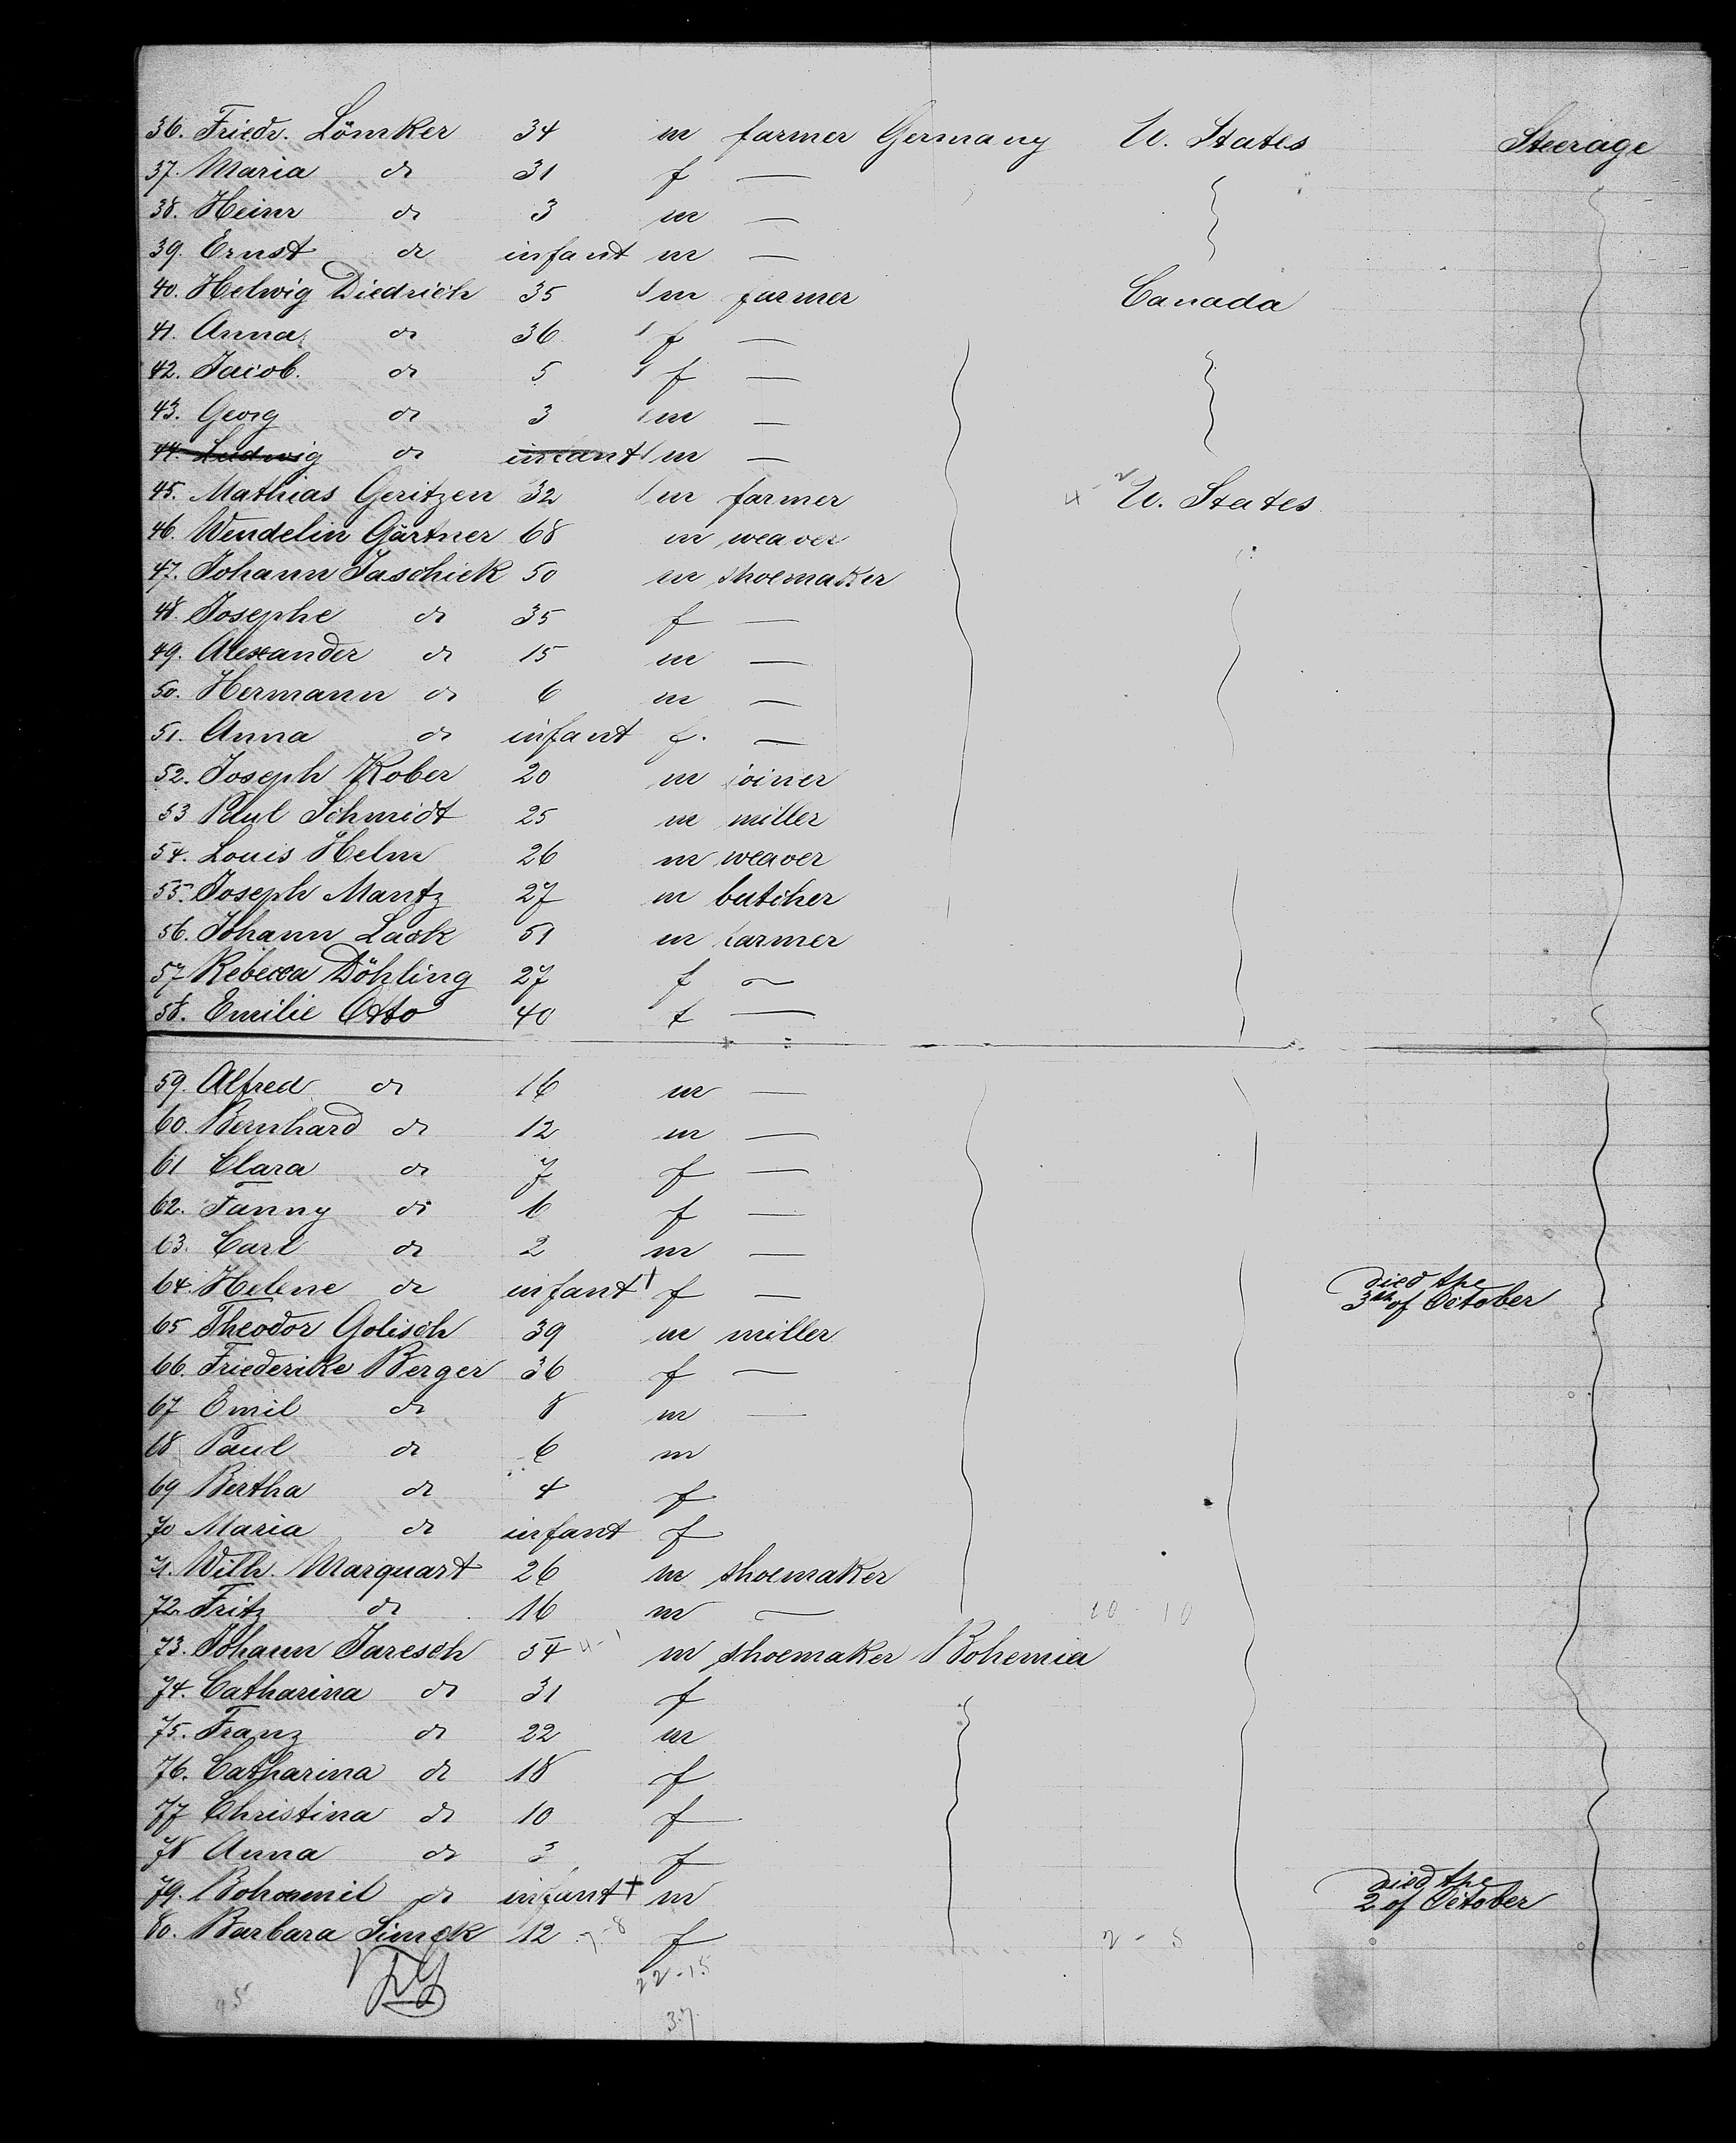 36. Friedr. Lömker 34 m farmer Germany U. States Steerage
37. Maria do 31 f —
38. Heinr do 3 m —
39. Ernst do infant m —
40. Helwig Diedrich 35 m farmer Canada
41. Anna do 36 f —
42. Jacob. do 5 f —
43. Georg do 3 m —
44. Ludwig do infant m —
45. Mathias Geritzen 32 m farmer U. States
46. Wendelin Gärtner 68 m weaver
47. Johann Jaschick 50 m shoemaker
48. Josephe do 35 f —
49. Alexander do 15 m —
50. Hermann do 6 m —
51. Anna do infant f. —
52. Joseph Kober 20 m joiner
53 Paul Schmidt 25 m miller
54. Louis Helm 26 m weaver
55. Joseph Mantz 27 m butcher
56. Johann Lack 51 m farmer
57 Rebecca Döhling 27 f —
58. Emilie Otto 40 f —
59. Alfred do 16 m —
60. Bernhard do 12 m —
61 Clara do 7 f —
62. Fanny do 6 f —
63. Carl do 2 m —
64. Helene do infant † f — died the 3th of October
65 Theodor Golisch 39 m miller
66. Friederike Berger 36 f —
67 Emil do 8 m —
68 Paul do 6 m
69 Bertha do 4 f
70 Maria do infant f
71. Wilh. Marquart 26 m shoemaker
72. Fritz do 16 m — 10 - 10
73. Johann Jaresch 54 4-1 m shoemaker Bohemia
74. Catharina do 31 f
75. Franz do 22 m
76. Catharina do 18 f
77 Christina do 10 f
78 Anna do 3 f
79. Bohoumil do infant † m died the 2 of October
80. Barbara Simek 12 7-8 f 2 - 5
22-15
95
37.